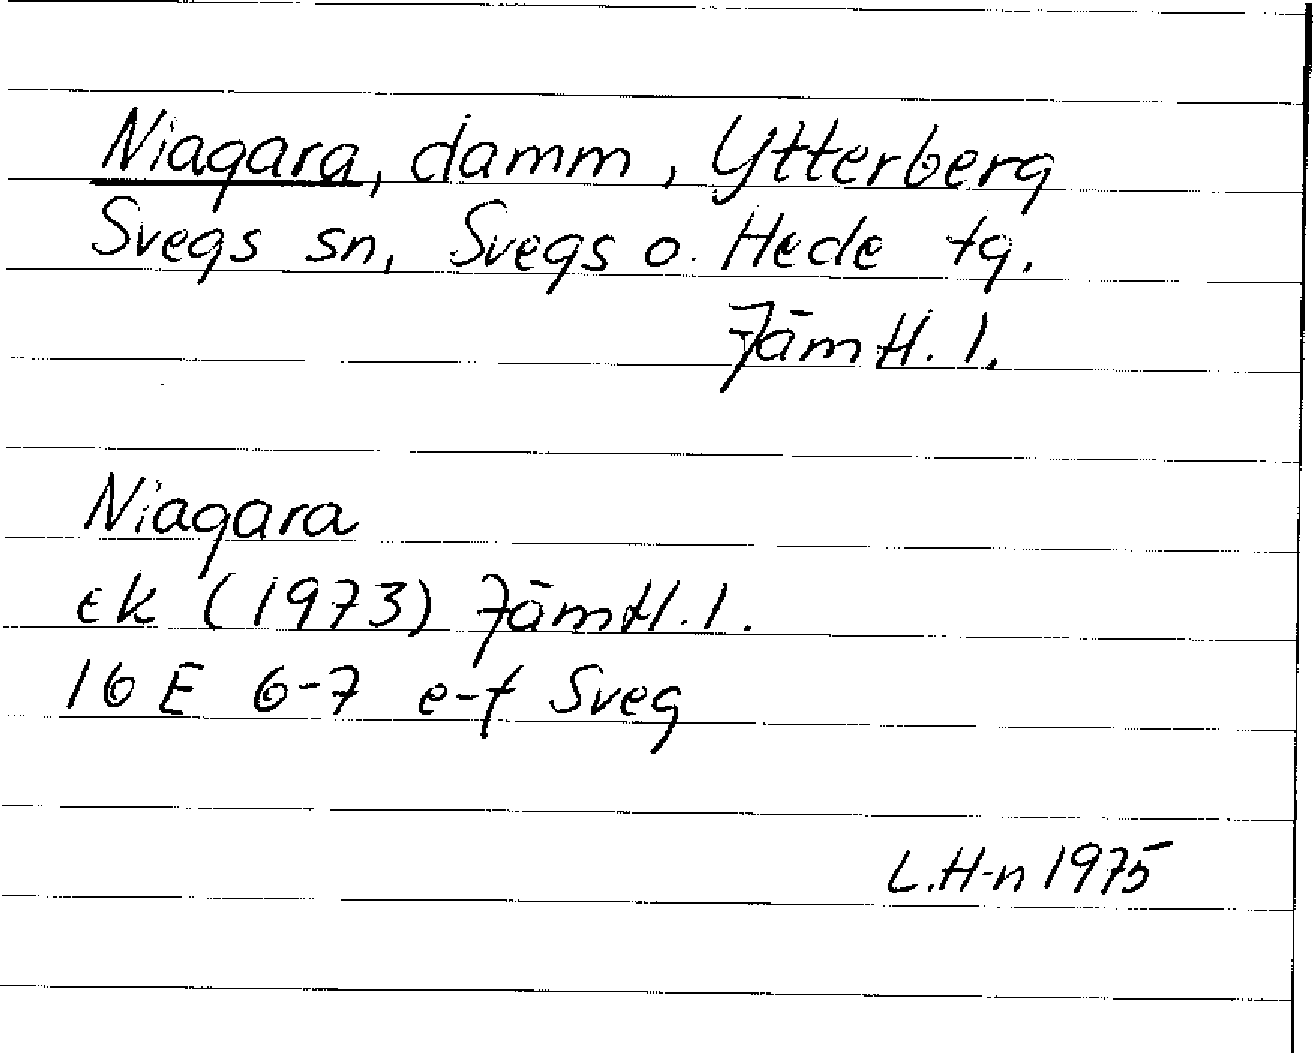 Niagara, damm, Ytterberg
Svegs sn, Svegs o. Hede tg.
Jämtl. l.
Niagara
ek (1973) Jämtl. l.
16 E 6-7 e-f Sveg
L.H-n 1975